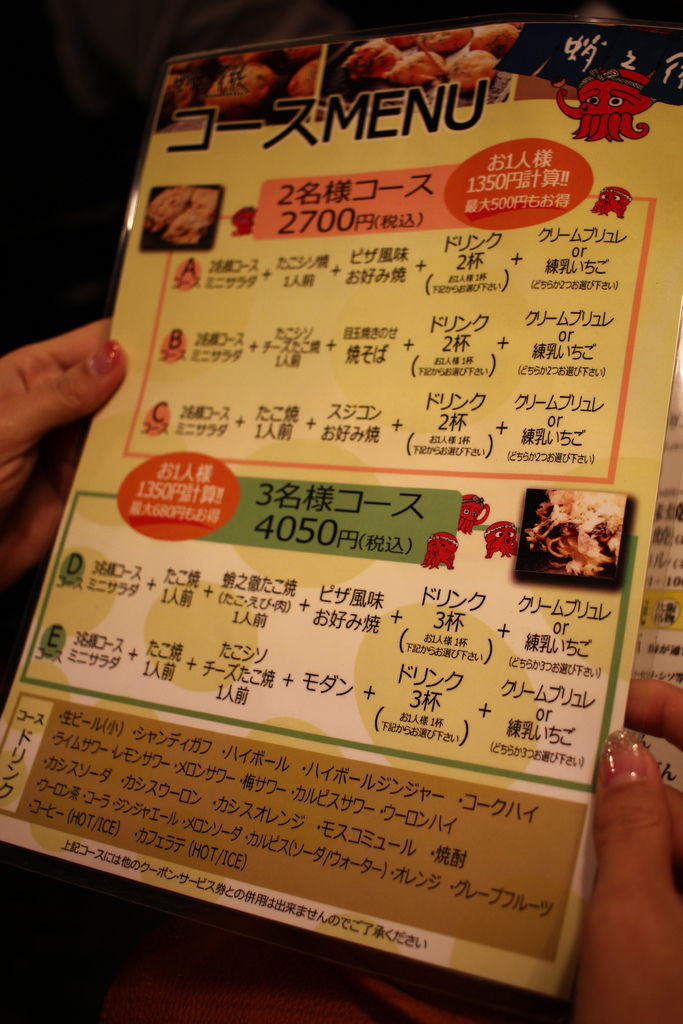 蛸之徹
コースMENU
お1人様
1350円計算!!
最大500円もお得
2名様コース
2700円(税込)
A コース 2名様コース ミニサラダ + たこシソ焼 1人前 + ピザ風味 お好み焼 + ドリンク 2杯 (お1人様 1杯 下記からお選び下さい) + クリームブリュレ or 練乳いちご (どちらか2つお選び下さい)
B コース 2名様コース ミニサラダ + たこシソ チーズたこ焼 1人前 + 目玉焼きのせ 焼そば + ドリンク 2杯 (お1人様 1杯 下記からお選び下さい) + クリームブリュレ or 練乳いちご (どちらか2つお選び下さい)
C コース 2名様コース ミニサラダ + たこ焼 1人前 + スジコン お好み焼 + ドリンク 2杯 (お1人様 1杯 下記からお選び下さい) + クリームブリュレ or 練乳いちご (どちらか2つお選び下さい)
お1人様
1350円計算!!
最大680円もお得
3名様コース
4050円(税込)
D コース 3名様コース ミニサラダ + たこ焼 1人前 + 蛸之徹たこ焼 (たこ・えび・肉) 1人前 + ピザ風味 お好み焼 + ドリンク 3杯 (お1人様 1杯 下記からお選び下さい) + クリームブリュレ or 練乳いちご (どちらか3つお選び下さい)
E コース 3名様コース ミニサラダ + たこ焼 1人前 + たこシソ チーズたこ焼 1人前 + モダン + ドリンク 3杯 (お1人様 1杯 下記からお選び下さい) + クリームブリュレ or 練乳いちご (どちらか3つお選び下さい)
コース
ドリンク
・生ビール(小) ・シャンディガフ ・ハイボール ・ハイボールジンジャー ・コークハイ
・ライムサワー ・レモンサワー ・メロンサワー ・梅サワー ・カルピスサワー ・ウーロンハイ
・カシスソーダ ・カシスウーロン ・カシスオレンジ ・モスコミュール ・焼酎
・ウーロン茶 ・コーラ ・ジンジャエール ・メロンソーダ ・カルピス(ソーダ/ウォーター) ・オレンジ ・グレープフルーツ
・コーヒー (HOT/ICE) ・カフェラテ (HOT/ICE)
上記コースには他のクーポン・サービス券との併用は出来ませんのでご了承ください